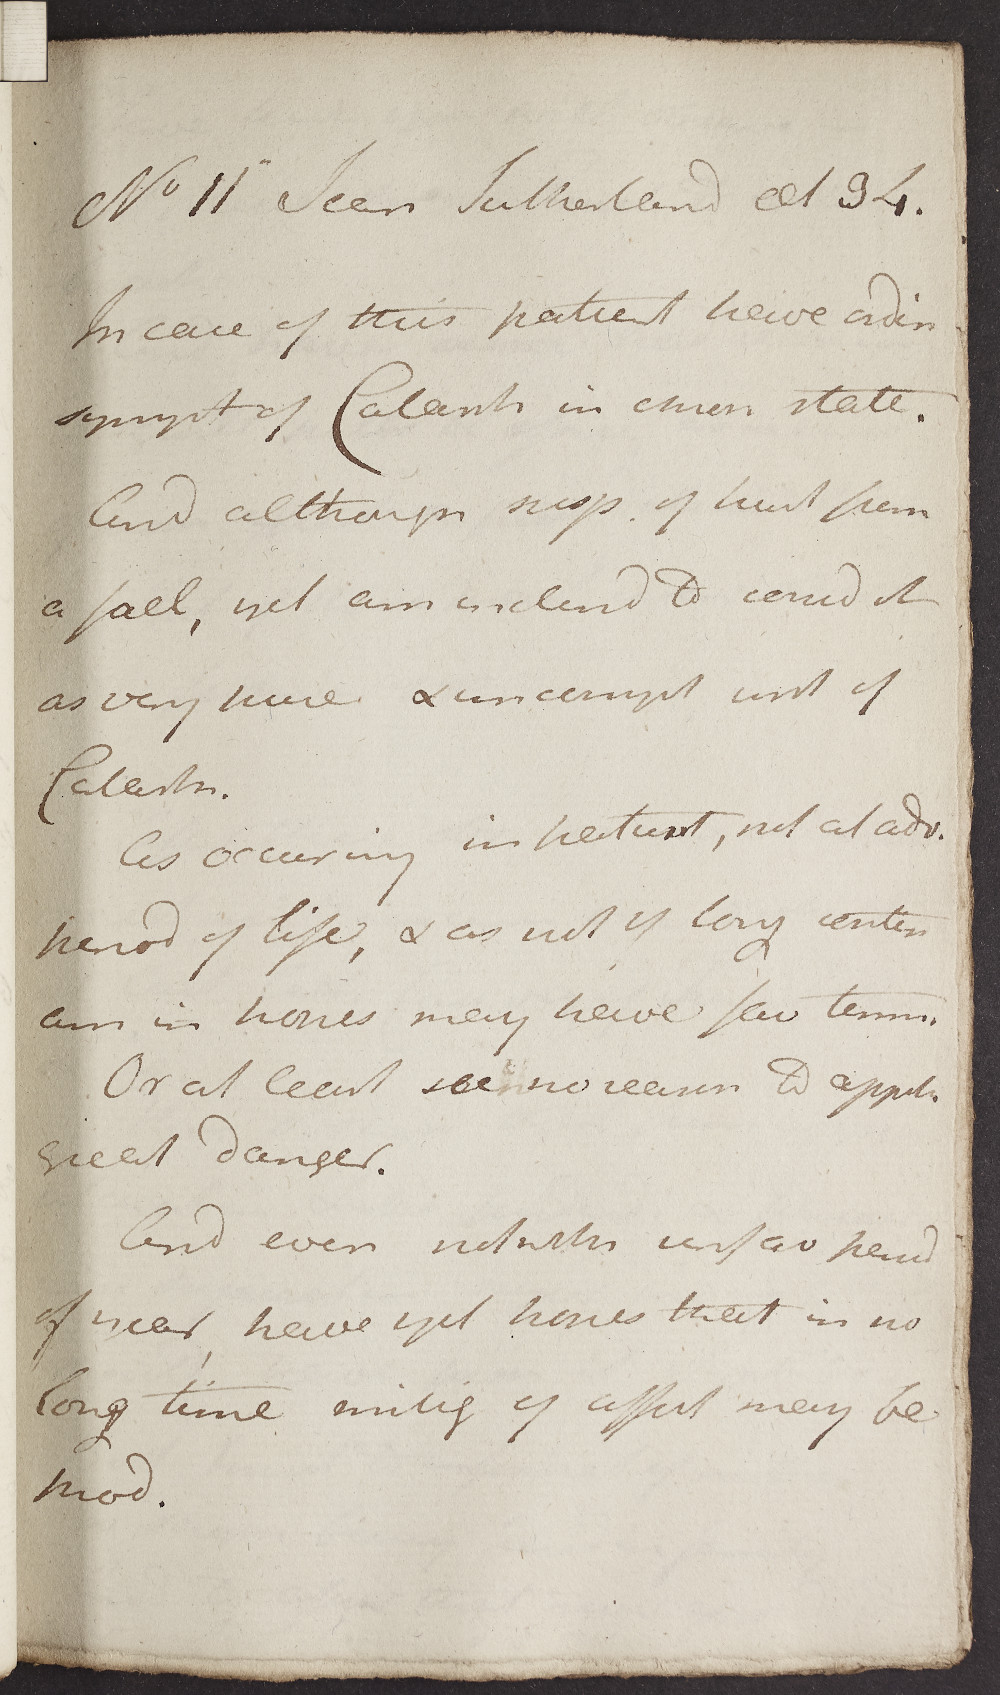 No 11 Jean Sutherland æt 34.
In case of this patient have ordin
sympt of Catarrh in chron state.
And although susp. of hurt from
a fall, yet am inclind to consid it
as very pure & uncompt inst of
Catarrh.
As occuring in patient, not at adv.
period of life, & as not of long contin
am in hopes may have fav termn.
Or at least see no reason to appreh.
great danger.
And even notwith unfav period
of year, have yet hopes that in no
long time mitig of affect may be
prod.